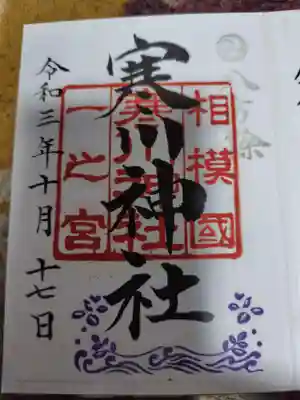 八方除
寒川神社
相模國
一之宮
寒川神社
令和三年十月十七日